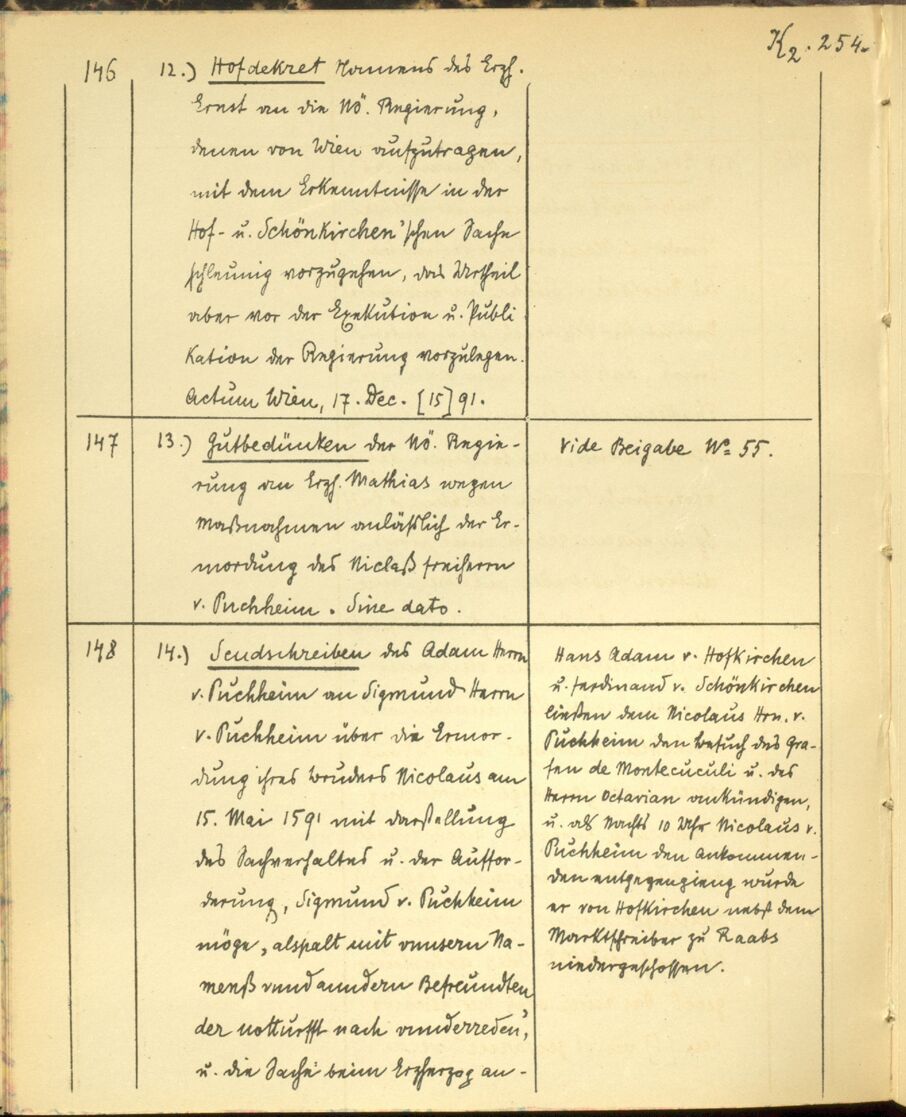 K2. 254.
146
12.) Hofdekret Namens des Erzh.
Ernst an die Nö. Regierung,
denen von Wien aufzutragen,
mit dem Erkenntnisse in der
Hof- u. Schönkirchen'schen Sache
schleunig vorzugehen, das Urtheil
aber vor der Exekution u. Publi
kation der Regierung vorzulegen.
Actum Wien, 17. Dec. [15]91.
147
13.) Gutbedünken der Nö. Regie-
rung an Erzh. Mathias wegen
Maßnahmen anläßlich der Er-
mordung des Niclaß freiherrn
v. Puchheim. Sine dato.
vide Beigabe No 55.
148
14.) Sendschreiben des Adam Herrn
v. Puchheim an Sigmund Herrn
v. Puchheim über die Ermor-
dung ihres Bruders Nicolaus am
15. Mai 1591 mit Darstellung
des Sachverhaltes u. der Auffor-
derung, Sigmund v. Puchheim
möge „alspalt mit vnnsern Na-
menß vnnd anndern Befreundten
der notturfft nach vnnderreden",
u. die Sache beim Erzherzog an-
Hans Adam v. Hofkirchen
u. Ferdinand v. Schönkirchen
ließen dem Nicolaus Hrn. v.
Puchheim den Besuch des Gra-
fen de Montecuculi u. des
Herrn Octavian ankündigen,
u. als Nachts 10 Uhr Nicolaus v.
Puchheim den Ankommen-
den entgegengieng wurde
er von Hofkirchen nebst dem
Marktschreiber zu Raabs
niedergeschossen.